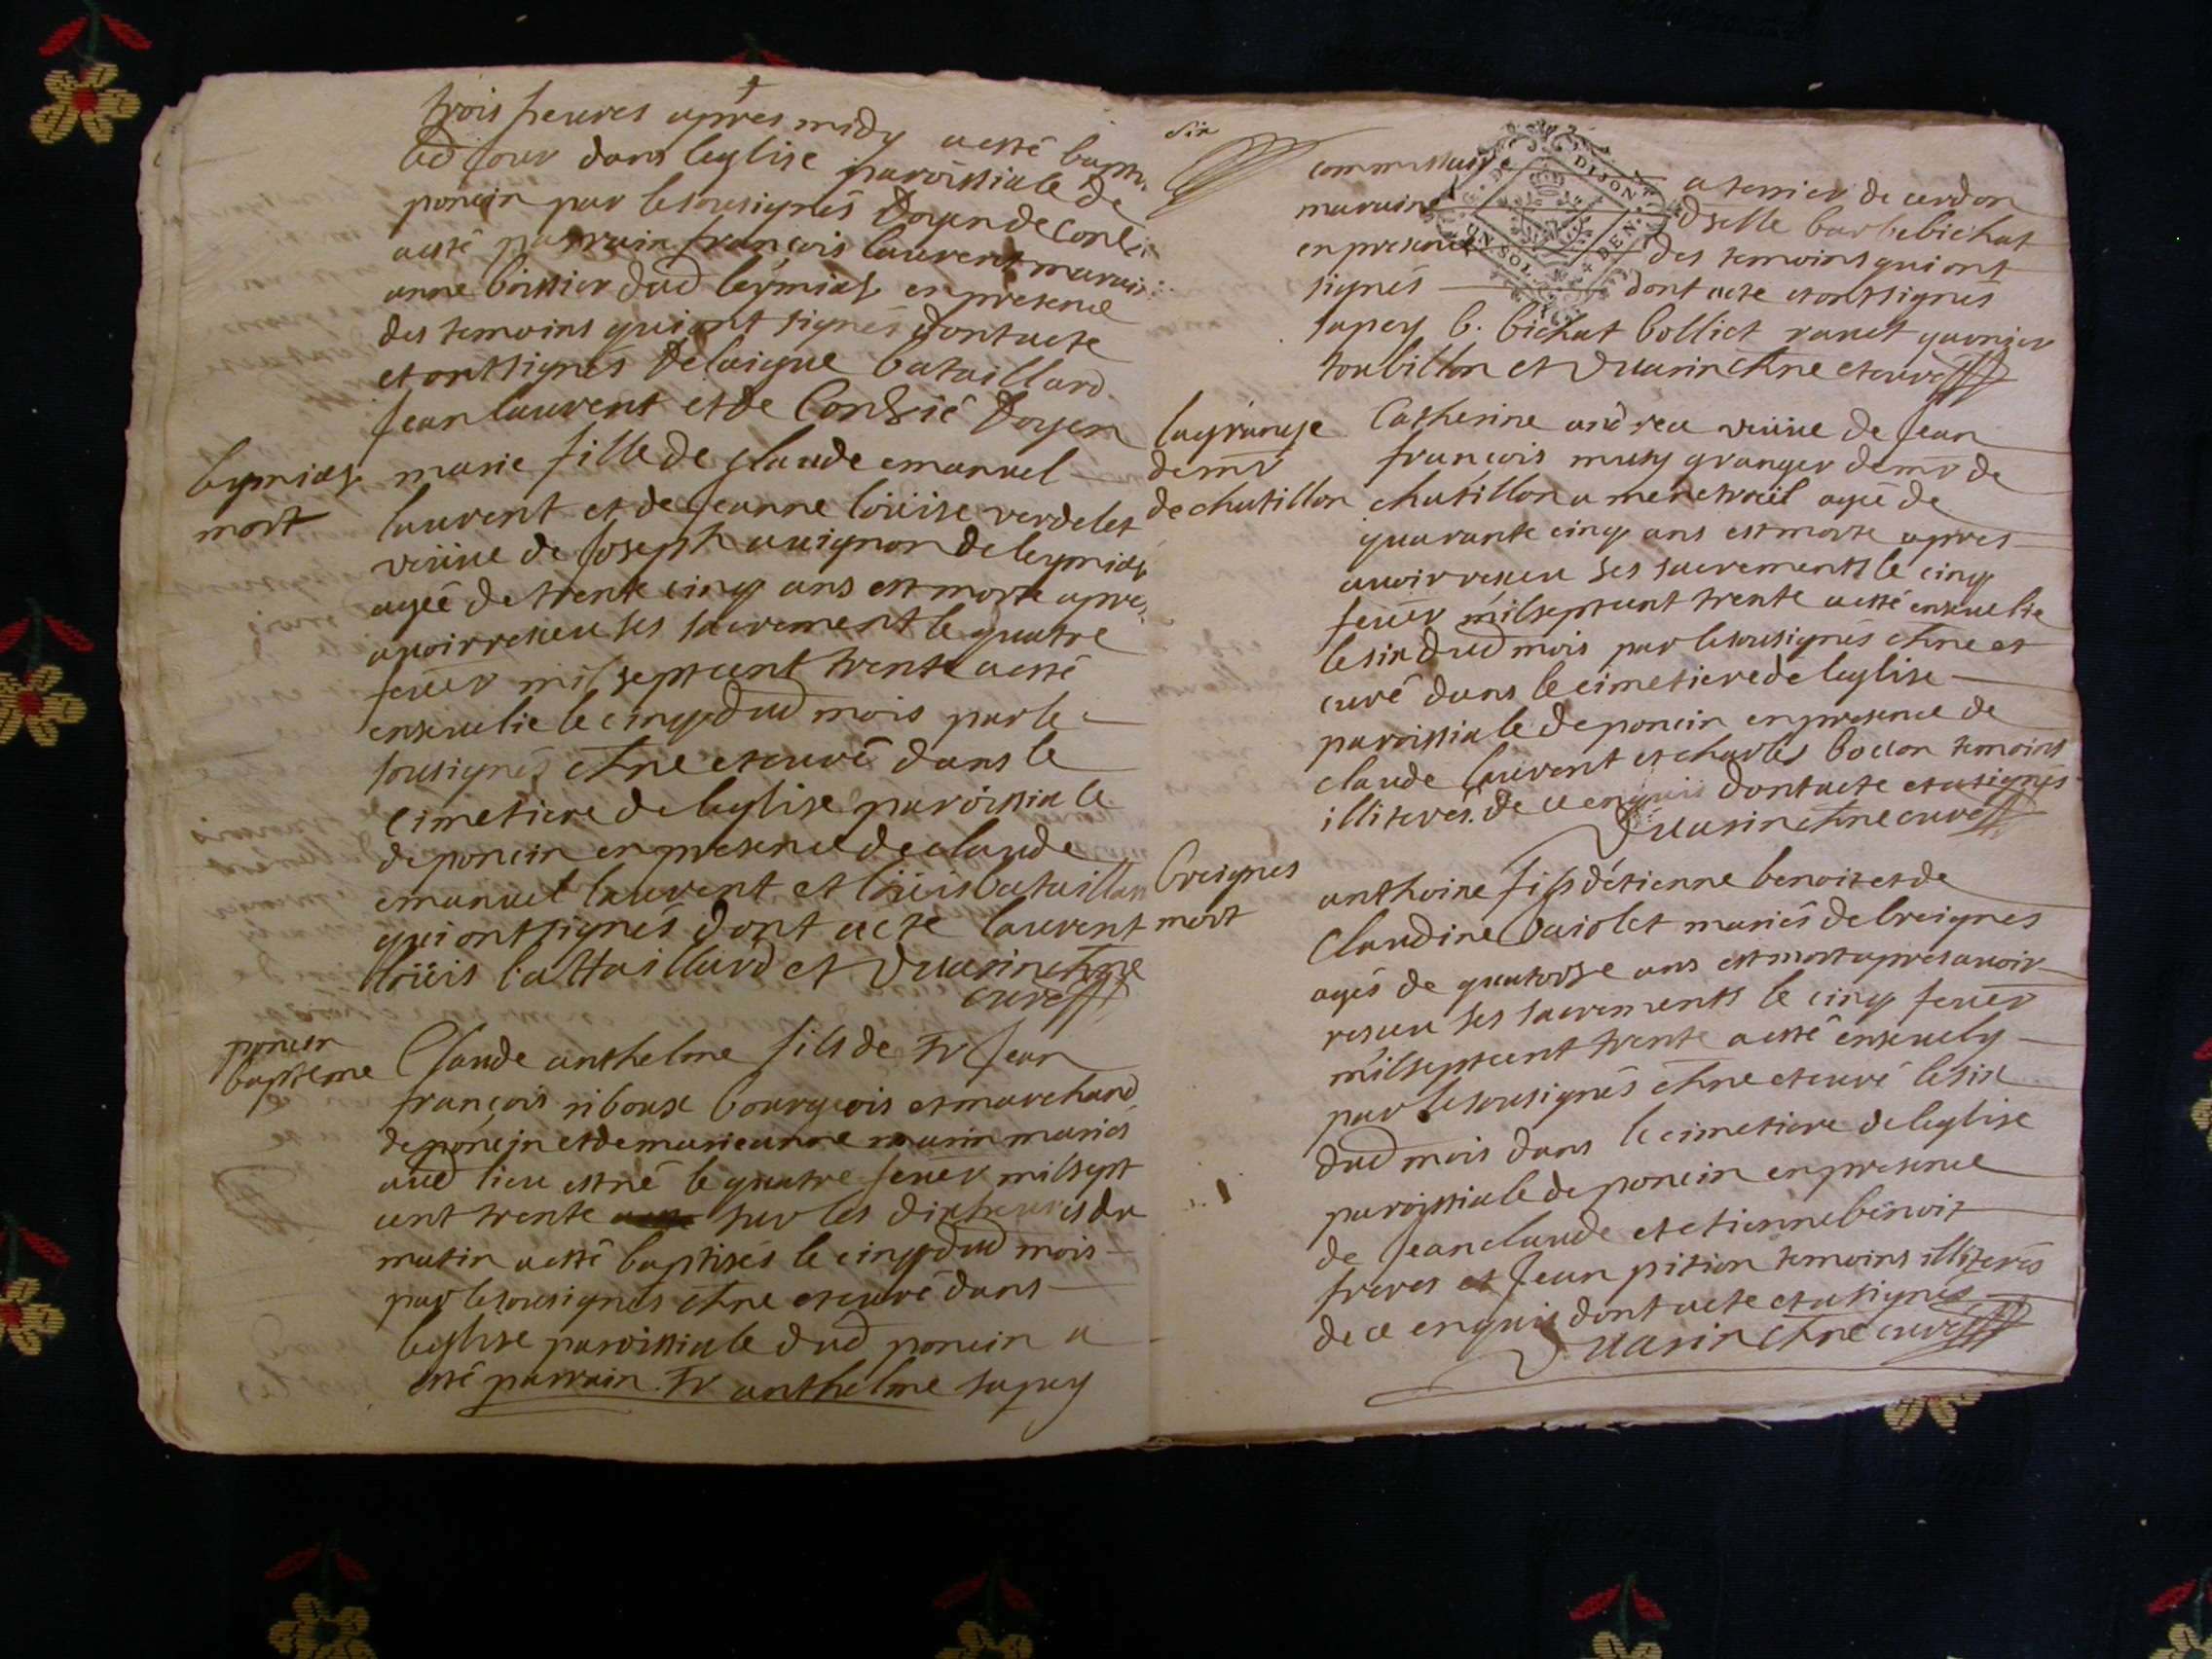 trois heures apres midy a esté bapti
led jour dans leglise paroissiale de
poncin par le sousignés Doyen de Conzié
a esté parrain françois laurent marai:
anne boissier dud leymiat en presence
des temoins qui ont signés dont acte
et ont signés Delaigue bataillard
Jean laurent et de Conzié Doyen
leymiat
mort
marie fille de glaude emanuel
laurent et de Jeanne loüise verdelet
veüve de Joseph auignon de leymiat
agée de trente cinq ans est morte apres
avoir resceu ses sacrement le quatre
feuer mil sept cent trente a esté
enseuelie le cinq dud mois par le
sousignés chne et curé dans le
cimetiere de leglise paroissiale
de poncin en presence de claude
emanuel laurent et loüis bataillar
qui ont signés dont acte laurent
loüis battaillard et Duarin chne
curé
poncin
bapteme
Claude anthelme fils de Sr Jean
françois riboux bourgeois et marchand
de poncin et de marieanne marin mariés
aud lieu est né le quatre feuer mil sept
cent trente sur les dix heures du
matin a esté baptisés le cinq dud mois
par le sousignés chne et curé dans
leglise paroissiale dud poncin a
esté parrain Sr anthelme sapey
six
commissaire a terrier de cerdon
maraine dselle barbe bichat
en presence des temoins qui ont
signés dont acte et ont signés
DE DIJON
sapey b. bichat bolliet ranet garnier
toubillon et Duarin chne et curé
lagrange
de mr
de chatillon
Catherine andrea veüve de Jean
françois musy granger de mr de
chatillon a menetrüel agé de
quarante cinq ans est morte apres
auoir resceu ses sacrements le cinq
feuer mil sept cent trente a esté enseuelie
le six dud mois par le sousignés chne et
curé dans le cimetiere de leglise
paroissiale de poncin en presence de
claude laurent et charles bocon temoins
illiterés de ce enquis dont acte et a signés
Duarin chne curé
breignes
mort
anthoine fils d'etienne benoit et de
Claudine baiolet mariés de breignes
agés de quatorse ans est mort apres auoir
resceu ses sacrements le cinq feuer
mil sept cent trente a esté enseuely
par le sousignés chne et curé le six
dud mois dans le cimetiere de leglise
paroissiale de poncin en presence
de Jean claude et etienne benoit
freres et Jean pition temoins illiterés
de ce enquis dont acte et a signés
Duarin chne curé